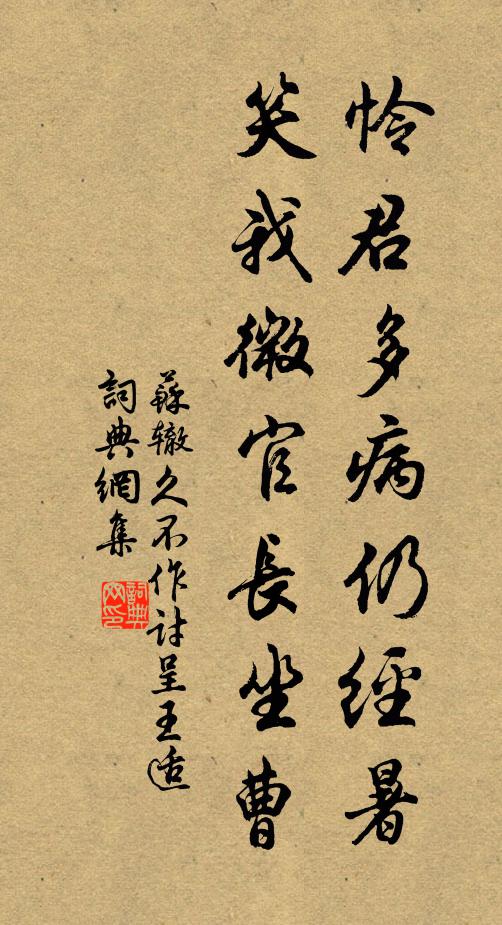 怜君多病仍經暑
笑我微官長坐曹
蘇辙久不作詩呈王适
詞典網集
詞典网印